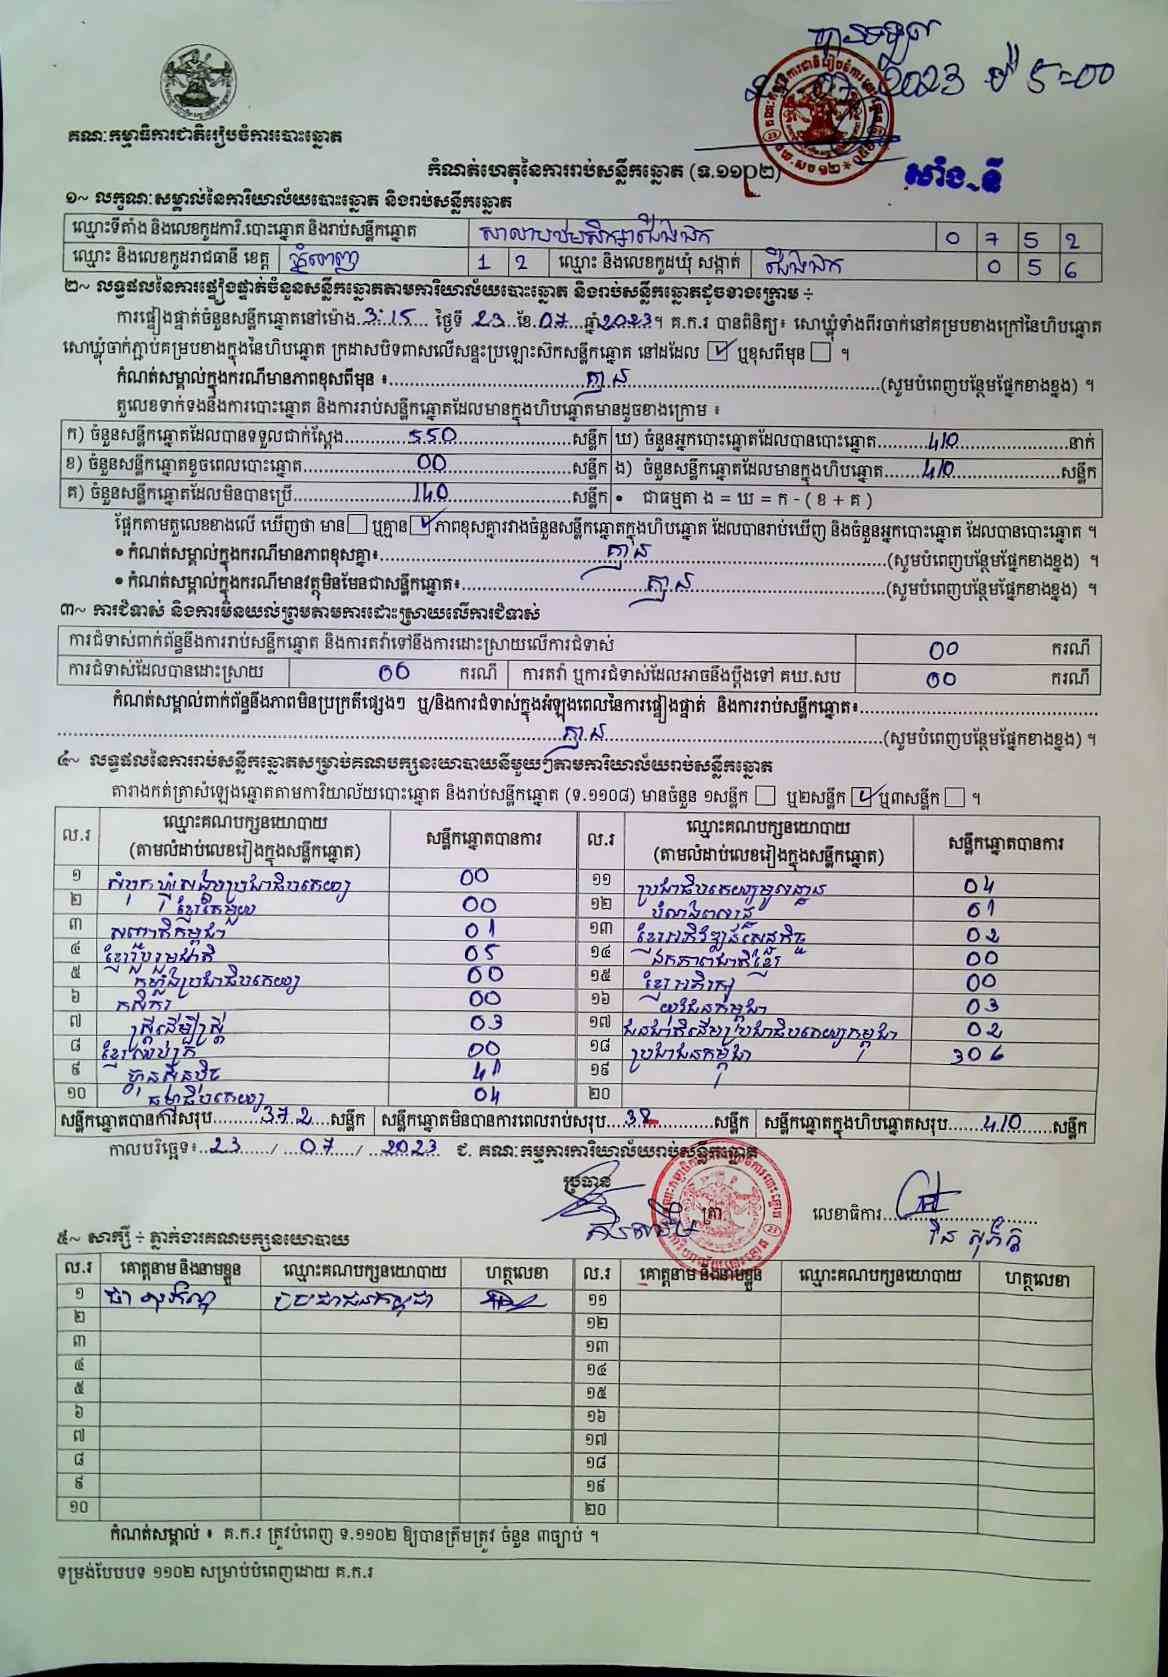 បានទទួល
2023 ម៉ 5-00
គណៈកម្មាធិការជាតិរៀបចំការបោះឆ្នោត
កំណត់ហេតុនៃការរាប់សន្លឹកឆ្នោត (ទ.១១០២)
សាំង.នី
១~ លក្ខណៈសម្គាល់នៃការិយាល័យបោះឆ្នោត និងរាប់សន្លឹកឆ្នោត
ឈ្មោះទីតាំង និងលេខកូដការិ.បោះឆ្នោត និងរាប់សន្លឹកឆ្នោត សាលាបឋមសិក្សាជើងឯក 0 7 5 2
ឈ្មោះ និងលេខកូដរាជធានី ខេត្ត ភ្នំពេញ 1 2 ឈ្មោះ និងលេខកូដឃុំ សង្កាត់ ជើងឯក 0 5 6
២~ លទ្ធផលនៃការផ្ទៀងផ្ទាត់ចំនួនសន្លឹកឆ្នោតតាមការិយាល័យបោះឆ្នោត និងរាប់សន្លឹកឆ្នោតដូចខាងក្រោម ÷
ការផ្ទៀងផ្ទាត់ចំនួនសន្លឹកឆ្នោតនៅម៉ោង 3:15 ថ្ងៃទី 23 ខែ 07 ឆ្នាំ 2023។ គ.ក.រ បានពិនិត្យ៖ សោឃ្លុំទាំងពីរចាក់នៅគម្របខាងក្រៅនៃហិបឆ្នោត
សោឃ្លុំចាក់ភ្ជាប់គម្របខាងក្នុងនៃហិបឆ្នោត ក្រដាសបិទពាសលើសន្ទះប្រឡោះស៊កសន្លឹកឆ្នោត នៅដដែល ☑ ឬខុសពីមុន ☐ ។
កំណត់សម្គាល់ក្នុងករណីមានភាពខុសពីមុន ៖ គ្មាន (សូមបំពេញបន្ថែមផ្នែកខាងខ្នង) ។
តួលេខទាក់ទងនឹងការបោះឆ្នោត និងការរាប់សន្លឹកឆ្នោតដែលមានក្នុងហិបឆ្នោតមានដូចខាងក្រោម ៖
ក) ចំនួនសន្លឹកឆ្នោតដែលបានទទួលជាក់ស្តែង 550 សន្លឹក ឃ) ចំនួនអ្នកបោះឆ្នោតដែលបានបោះឆ្នោត 410 នាក់
ខ) ចំនួនសន្លឹកឆ្នោតខូចពេលបោះឆ្នោត 00 សន្លឹក ង) ចំនួនសន្លឹកឆ្នោតដែលមានក្នុងហិបឆ្នោត 410 សន្លឹក
គ) ចំនួនសន្លឹកឆ្នោតដែលមិនបានប្រើ 140 សន្លឹក • ជាធម្មតា ង = ឃ = ក - ( ខ + គ )
ផ្អែកតាមតួលេខខាងលើ ឃើញថា មាន ☐ ឬគ្មាន ☑ ភាពខុសគ្នារវាងចំនួនសន្លឹកឆ្នោតក្នុងហិបឆ្នោត ដែលបានរាប់ឃើញ និងចំនួនអ្នកបោះឆ្នោត ដែលបានបោះឆ្នោត ។
• កំណត់សម្គាល់ក្នុងករណីមានភាពខុសគ្នា៖ គ្មាន (សូមបំពេញបន្ថែមផ្នែកខាងខ្នង) ។
• កំណត់សម្គាល់ក្នុងករណីមានវត្ថុមិនមែនជាសន្លឹកឆ្នោត៖ គ្មាន (សូមបំពេញបន្ថែមផ្នែកខាងខ្នង) ។
៣~ ការជំទាស់ និងការមិនយល់ព្រមតាមការដោះស្រាយលើការជំទាស់
ការជំទាស់ពាក់ព័ន្ធនឹងការរាប់សន្លឹកឆ្នោត និងការតវ៉ាទៅនឹងការដោះស្រាយលើការជំទាស់ 00 ករណី
ការជំទាស់ដែលបានដោះស្រាយ 00 ករណី ការតវ៉ា ឬការជំទាស់ដែលអាចនឹងប្តឹងទៅ គឃ.សប 00 ករណី
កំណត់សម្គាល់ពាក់ព័ន្ធនឹងភាពមិនប្រក្រតីផ្សេងៗ ឬ/និងការជំទាស់ក្នុងអំឡុងពេលនៃការផ្ទៀងផ្ទាត់ និងការរាប់សន្លឹកឆ្នោត៖
គ្មាន (សូមបំពេញបន្ថែមផ្នែកខាងខ្នង) ។
៤~ លទ្ធផលនៃការរាប់សន្លឹកឆ្នោតសម្រាប់គណបក្សនយោបាយនីមួយៗតាមការិយាល័យរាប់សន្លឹកឆ្នោត
តារាងកត់ត្រាសំឡេងឆ្នោតតាមការិយាល័យបោះឆ្នោត និងរាប់សន្លឹកឆ្នោត (ទ.១១០៨) មានចំនួន ១សន្លឹក ☐ ឬ២សន្លឹក ☑ ឬ៣សន្លឹក ☐ ។
ល.រ ឈ្មោះគណបក្សនយោបាយ (តាមលំដាប់លេខរៀងក្នុងសន្លឹកឆ្នោត) សន្លឹកឆ្នោតបានការ ល.រ ឈ្មោះគណបក្សនយោបាយ (តាមលំដាប់លេខរៀងក្នុងសន្លឹកឆ្នោត) សន្លឹកឆ្នោតបានការ
១ សំបុកឃ្មុំសង្គមប្រជាធិបតេយ្យ 00 ១១ ប្រជាធិបតេយ្យមូលដ្ឋាន 04
២ ខ្មែរតែមួយ 00 ១២ បំណងពលរដ្ឋ 01
៣ សញ្ជាតិកម្ពុជា 01 ១៣ ខ្មែរអភិវឌ្ឍន៍សេដ្ឋកិច្ច 02
៤ ខ្មែររួបរួមជាតិ 05 ១៤ ឯកភាពជាតិខ្មែរ 00
៥ កម្លាំងប្រជាធិបតេយ្យ 00 ១៥ ខ្មែរអភិរក្ស 00
៦ កសិករ 00 ១៦ យុវជនកម្ពុជា 03
៧ ស្ត្រីដើម្បីស្ត្រី 03 ១៧ ជនជាតិដើមប្រជាធិបតេយ្យកម្ពុជា 02
៨ ខ្មែរឈប់ក្រ 00 ១៨ ប្រជាជនកម្ពុជា 306
៩ ហ៊្វុនស៊ិនប៉ិច 41 ១៩
១០ ធម្មាធិបតេយ្យ 04 ២០
សន្លឹកឆ្នោតបានការសរុប 372 សន្លឹក សន្លឹកឆ្នោតមិនបានការពេលរាប់សរុប 38 សន្លឹក សន្លឹកឆ្នោតក្នុងហិបឆ្នោតសរុប 410 សន្លឹក
កាលបរិច្ឆេទ៖ 23 / 07 / 2023 ជ. គណៈកម្មការការិយាល័យរាប់សន្លឹកឆ្នោត
ប្រធាន ត្រា លេខាធិការ
៥~ សាក្សី ÷ ភ្នាក់ងារគណបក្សនយោបាយ
ល.រ គោត្តនាម និងនាមខ្លួន ឈ្មោះគណបក្សនយោបាយ ហត្ថលេខា ល.រ គោត្តនាម និងនាមខ្លួន ឈ្មោះគណបក្សនយោបាយ ហត្ថលេខា
១ ប្រជាជនកម្ពុជា ១១
២ ១២
៣ ១៣
៤ ១៤
៥ ១៥
៦ ១៦
៧ ១៧
៨ ១៨
៩ ១៩
១០ ២០
កំណត់សម្គាល់ ៖ គ.ក.រ ត្រូវបំពេញ ទ.១១០២ ឱ្យបានត្រឹមត្រូវ ចំនួន ៣ច្បាប់ ។
ទម្រង់បែបបទ ១១០២ សម្រាប់បំពេញដោយ គ.ក.រ